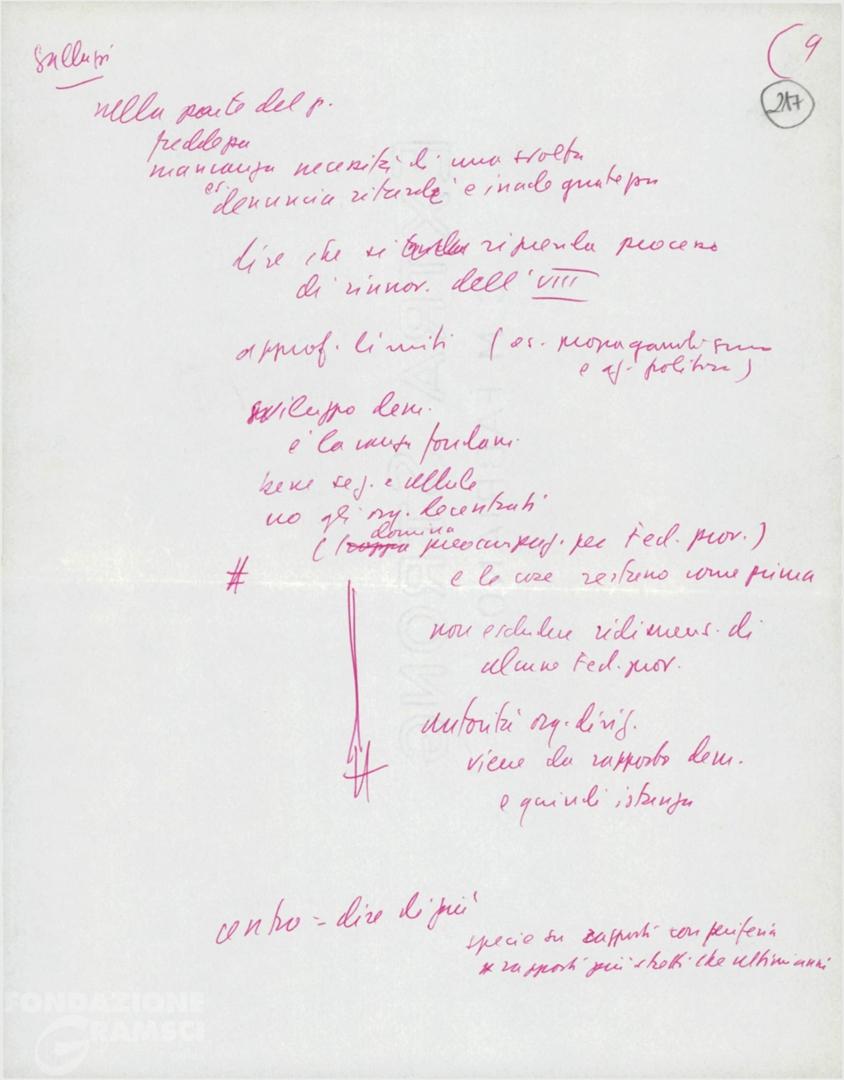 Gallupi
( 9
217
nella parte del p.
freddezza
mancanza necessità di una svolta
es. denuncia ritardi e inadeguatezza
dire che si riprenda processo
di rinnov. dell' VIII
approf. limiti ( es. propagandismo
e ag. politica )
sviluppo dem.
è la causa fondam.
bene sez. e cellule
no gli org. decentrati
( domina preoccupaz. per Fed. prov. )
# e le cose restano come prima
non escludere ridimens. di
alcune Fed. prov.
autorità org. dirig.
viene da rapporto dem.
e quindi istanza
#
centro = dire di più
specie su rapporti con periferia
rapporti più stretti che ultimi anni
FONDAZIONE
GRAMSCI